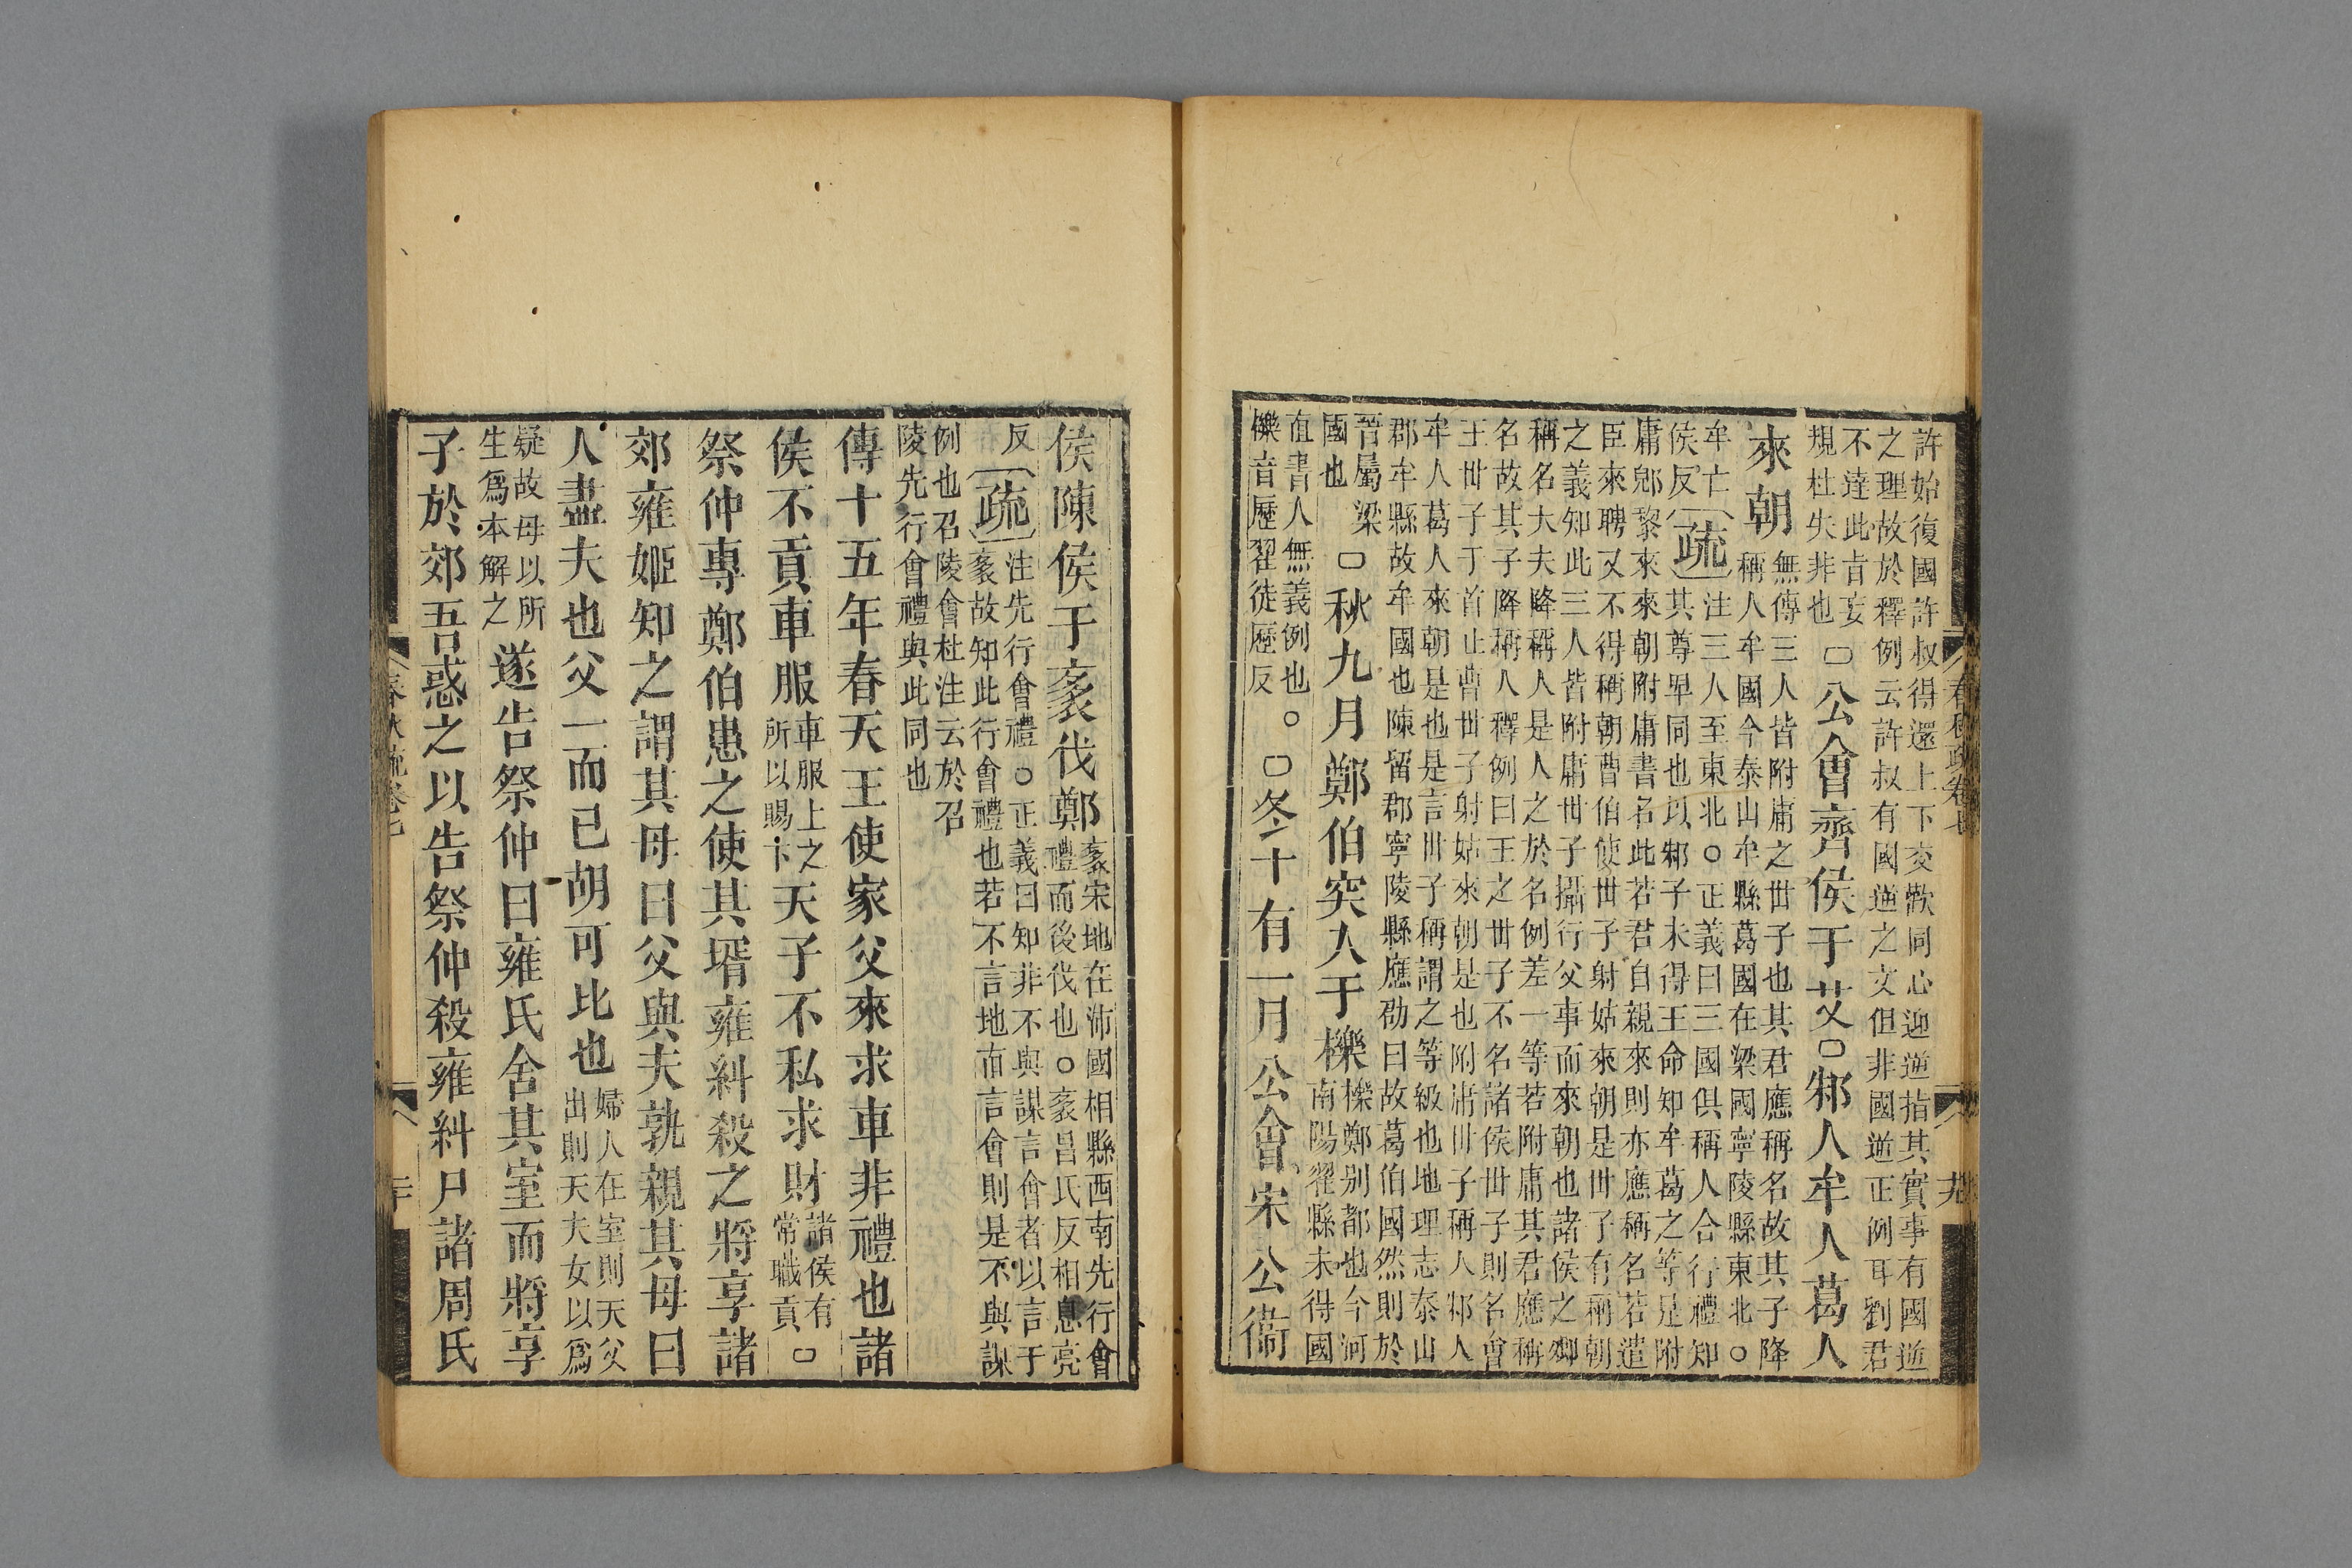 許始復國許叔得還上下交歡同心迎逆指其實事有國逆
之理故於釋例云許叔有國逆之文但非國逆正例耳劉君
不達此旨妄
規杜失非也
□公會齊侯于艾□邾人牟人葛人
來朝
無傳三人皆附庸之世子也其君應稱名故其子降
稱人牟國今泰山牟縣葛國在梁國寧陵縣東北○
牟亡
侯反
疏
注三人至東北○正義曰三國俱稱人合行禮知
其尊卑同也以邾子未得王命知牟葛之等是附
庸郳黎來來朝附庸書名此若君自親來則亦應稱名若遣
臣來聘又不得稱朝曹伯使世子射姑來朝是世子有稱朝
之義知此三人皆附庸世子攝行父事而來朝也諸侯之卿
稱名大夫降稱人是人之於名例差一等若附庸其君應稱
名故其子降稱人釋例曰王之世子不名諸侯世子則名會
王世子于首止曹世子射姑來朝是也附庸世子稱人邾人
牟人葛人來朝是也是言世子稱謂之等級也地理志泰山
郡牟縣故牟國也陳留郡寧陵縣應劭曰故葛伯國然則於
晉屬梁
國也
□秋九月鄭伯突入于櫟
櫟鄭別都也今河
南陽翟縣未得國
直書入無義例也○
櫟音歷翟徒歷反
□冬十有一月公會宋公衞
侯陳侯于袲伐鄭
袲宋地在沛國相縣西南先行會
禮而後伐也○袲昌氏反相息亮
反
疏
注先行會禮○正義曰知非不與謀言會者以言于
袲故知此行會禮也若不言地而言會則是不與謀
例也召陵會杜注云於召
陵先行會禮與此同也
傳十五年春天王使家父來求車非禮也諸
侯不貢車服
車服上之
所以賜下
天子不私求財
諸侯有
常職貢
□
祭仲專鄭伯患之使其壻雍糾殺之將享諸
郊雍姬知之謂其母曰父與夫孰親其母曰
人盡夫也父一而已胡可比也
婦人在室則天父
出則天夫女以爲
疑故母以所
生爲本解之
遂告祭仲曰雍氏舍其室而將享
子於郊吾惑之以告祭仲殺雍糾尸諸周氏
春秋疏卷七